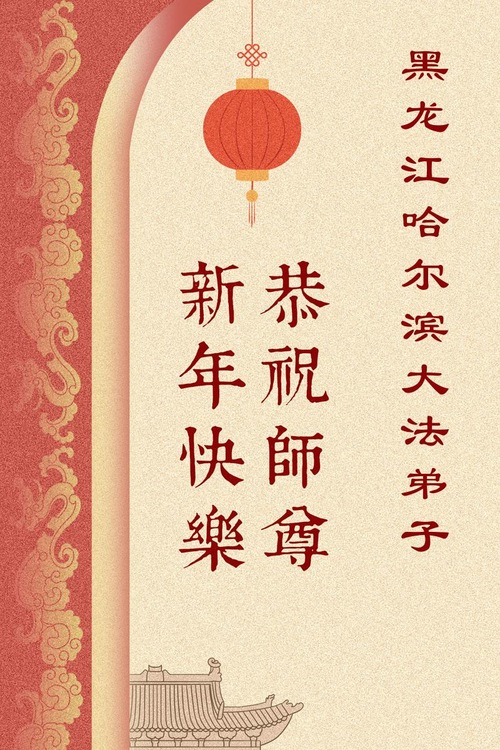 黑龙江哈尔滨大法弟子
恭祝師尊
新年快樂